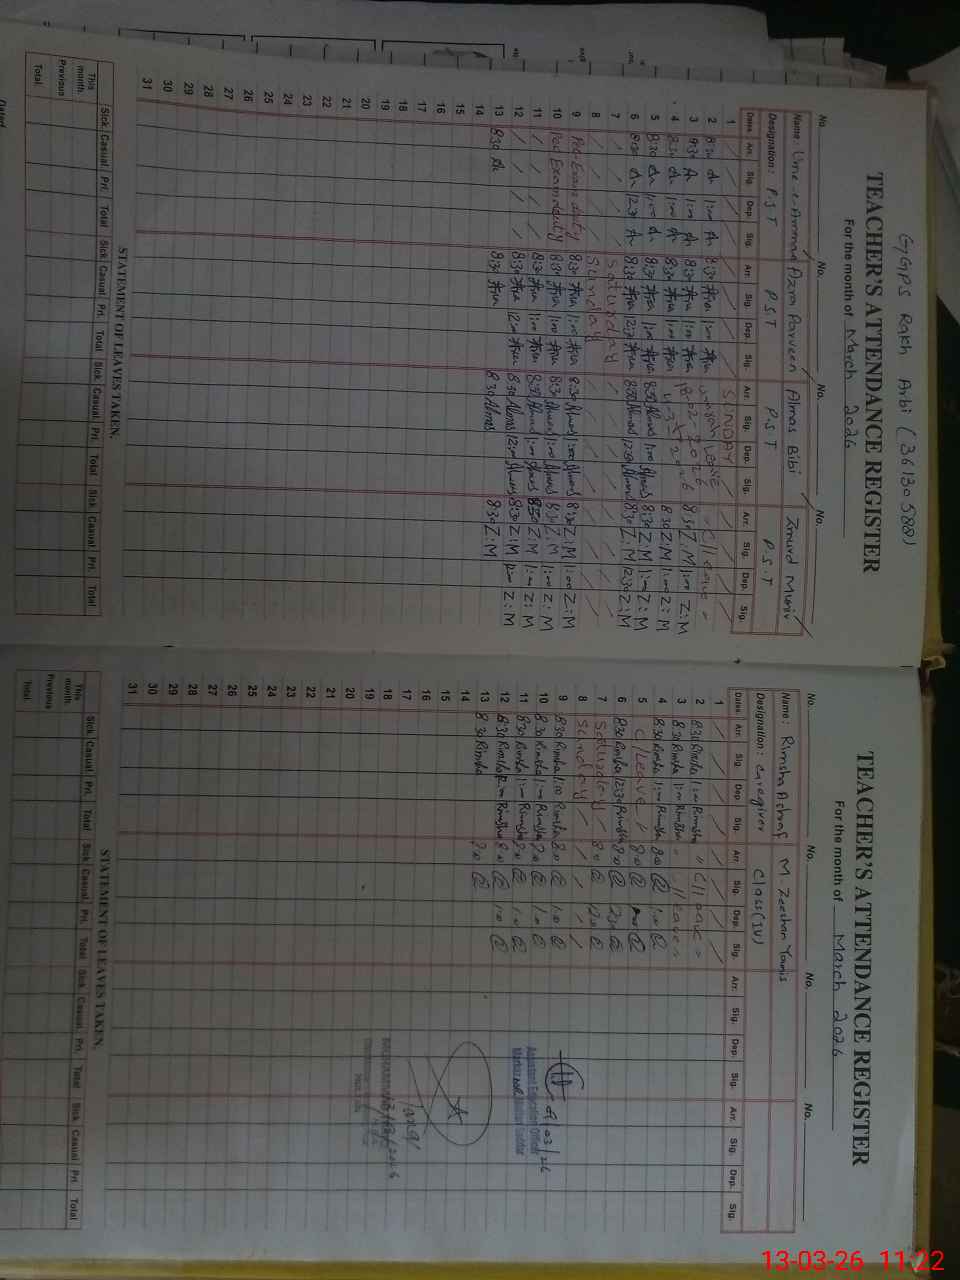 GGPS Rakh Arbi (36130588)
TEACHER'S ATTENDANCE REGISTER
For the month of March 2026
No. No. No. No.
Name: Ume-e-Amman Azra Parveen Almas Bibi Zmurd Muniv
Designation: P.S.T P.S.T P.S.T P.S.T
Dates Arr. Sig. Dep. Sig. Arr. Sig. Dep. Sig. Arr. Sig. Dep. Sig. Arr. Sig. Dep. Sig.
1 SUNDAY
2 8:30 1:00 8:30 1:00 Leave C/Leave
3 8:30 1:00 8:30 1:00 8:30 Z:M 1:00 Z:M
4 8:30 1:00 8:30 1:00 8:30 Z:M 1:00 Z:M
5 8:30 1:00 8:30 1:00 8:30 Almas 1:00 Almas 8:30 Z:M 1:00 Z:M
6 8:30 12:30 8:30 12:30 8:30 Almas 12:30 Almas 8:30 Z:M 12:30 Z:M
7 Saturday
8 Sunday
9 Pec Exam duty 8:30 1:00 8:30 Almas 1:00 Almas 8:30 Z:M 1:00 Z:M
10 Pec Exam duty 8:30 1:00 8:30 Almas 1:00 Almas 8:30 Z:M 1:00 Z:M
11 8:30 1:00 8:30 Almas 1:00 Almas 8:30 Z:M 1:00 Z:M
12 8:30 12:00 8:30 Almas 12:00 Almas 8:30 Z:M 12:00 Z:M
13 8:30 8:30 8:30 Almas 8:30 Z:M
14
15
16
17
18
19
20
21
22
23
24
25
26
27
28
29
30
31
STATEMENT OF LEAVES TAKEN.
Sick Casual Pri. Total Sick Casual Pri. Total Sick Casual Pri. Total Sick Casual Pri. Total
This month.
Previous
Total.
TEACHER'S ATTENDANCE REGISTER
For the month of March 2026
No. No. No. No.
Name: Rimsha Ashraf M. Zeeshan Younis
Designation: Caregiver Class (IV)
Dates Arr. Sig. Dep. Sig. Arr. Sig. Dep. Sig. Arr. Sig. Dep. Sig. Arr. Sig. Dep. Sig.
1
2 8:30 Rimsha 1:00 Rimsha C/Leave
3 8:30 Rimsha 1:00 Rimsha C/Leave
4 8:30 Rimsha 1:00 Rimsha 8:0 1:0
5 C/Leave 8:0
6 8:30 Rimsha 12:30 Rimsha 8:0
7 Saturday 8:0
8 Sunday
9 8:30 Rimsha 1:00 Rimsha 8:0 1:0
10 8:30 Rimsha 1:00 Rimsha 8:0 1:0
11 8:30 Rimsha 1:00 Rimsha 8:0 1:0
12 8:30 Rimsha 12:00 Rimsha 8:0 1:0
13 8:30 Rimsha 8:0
14
15
16
17
18
19
20
21
22
23
24
25
26
27
28
29
30
31
9/03/26
Assistant Education Officer
13/03/2026
STATEMENT OF LEAVES TAKEN.
Sick Casual Pri. Total Sick Casual Pri. Total Sick Casual Pri. Total Sick Casual Pri. Total
This month.
Previous
Total.
13-03-26 11:22